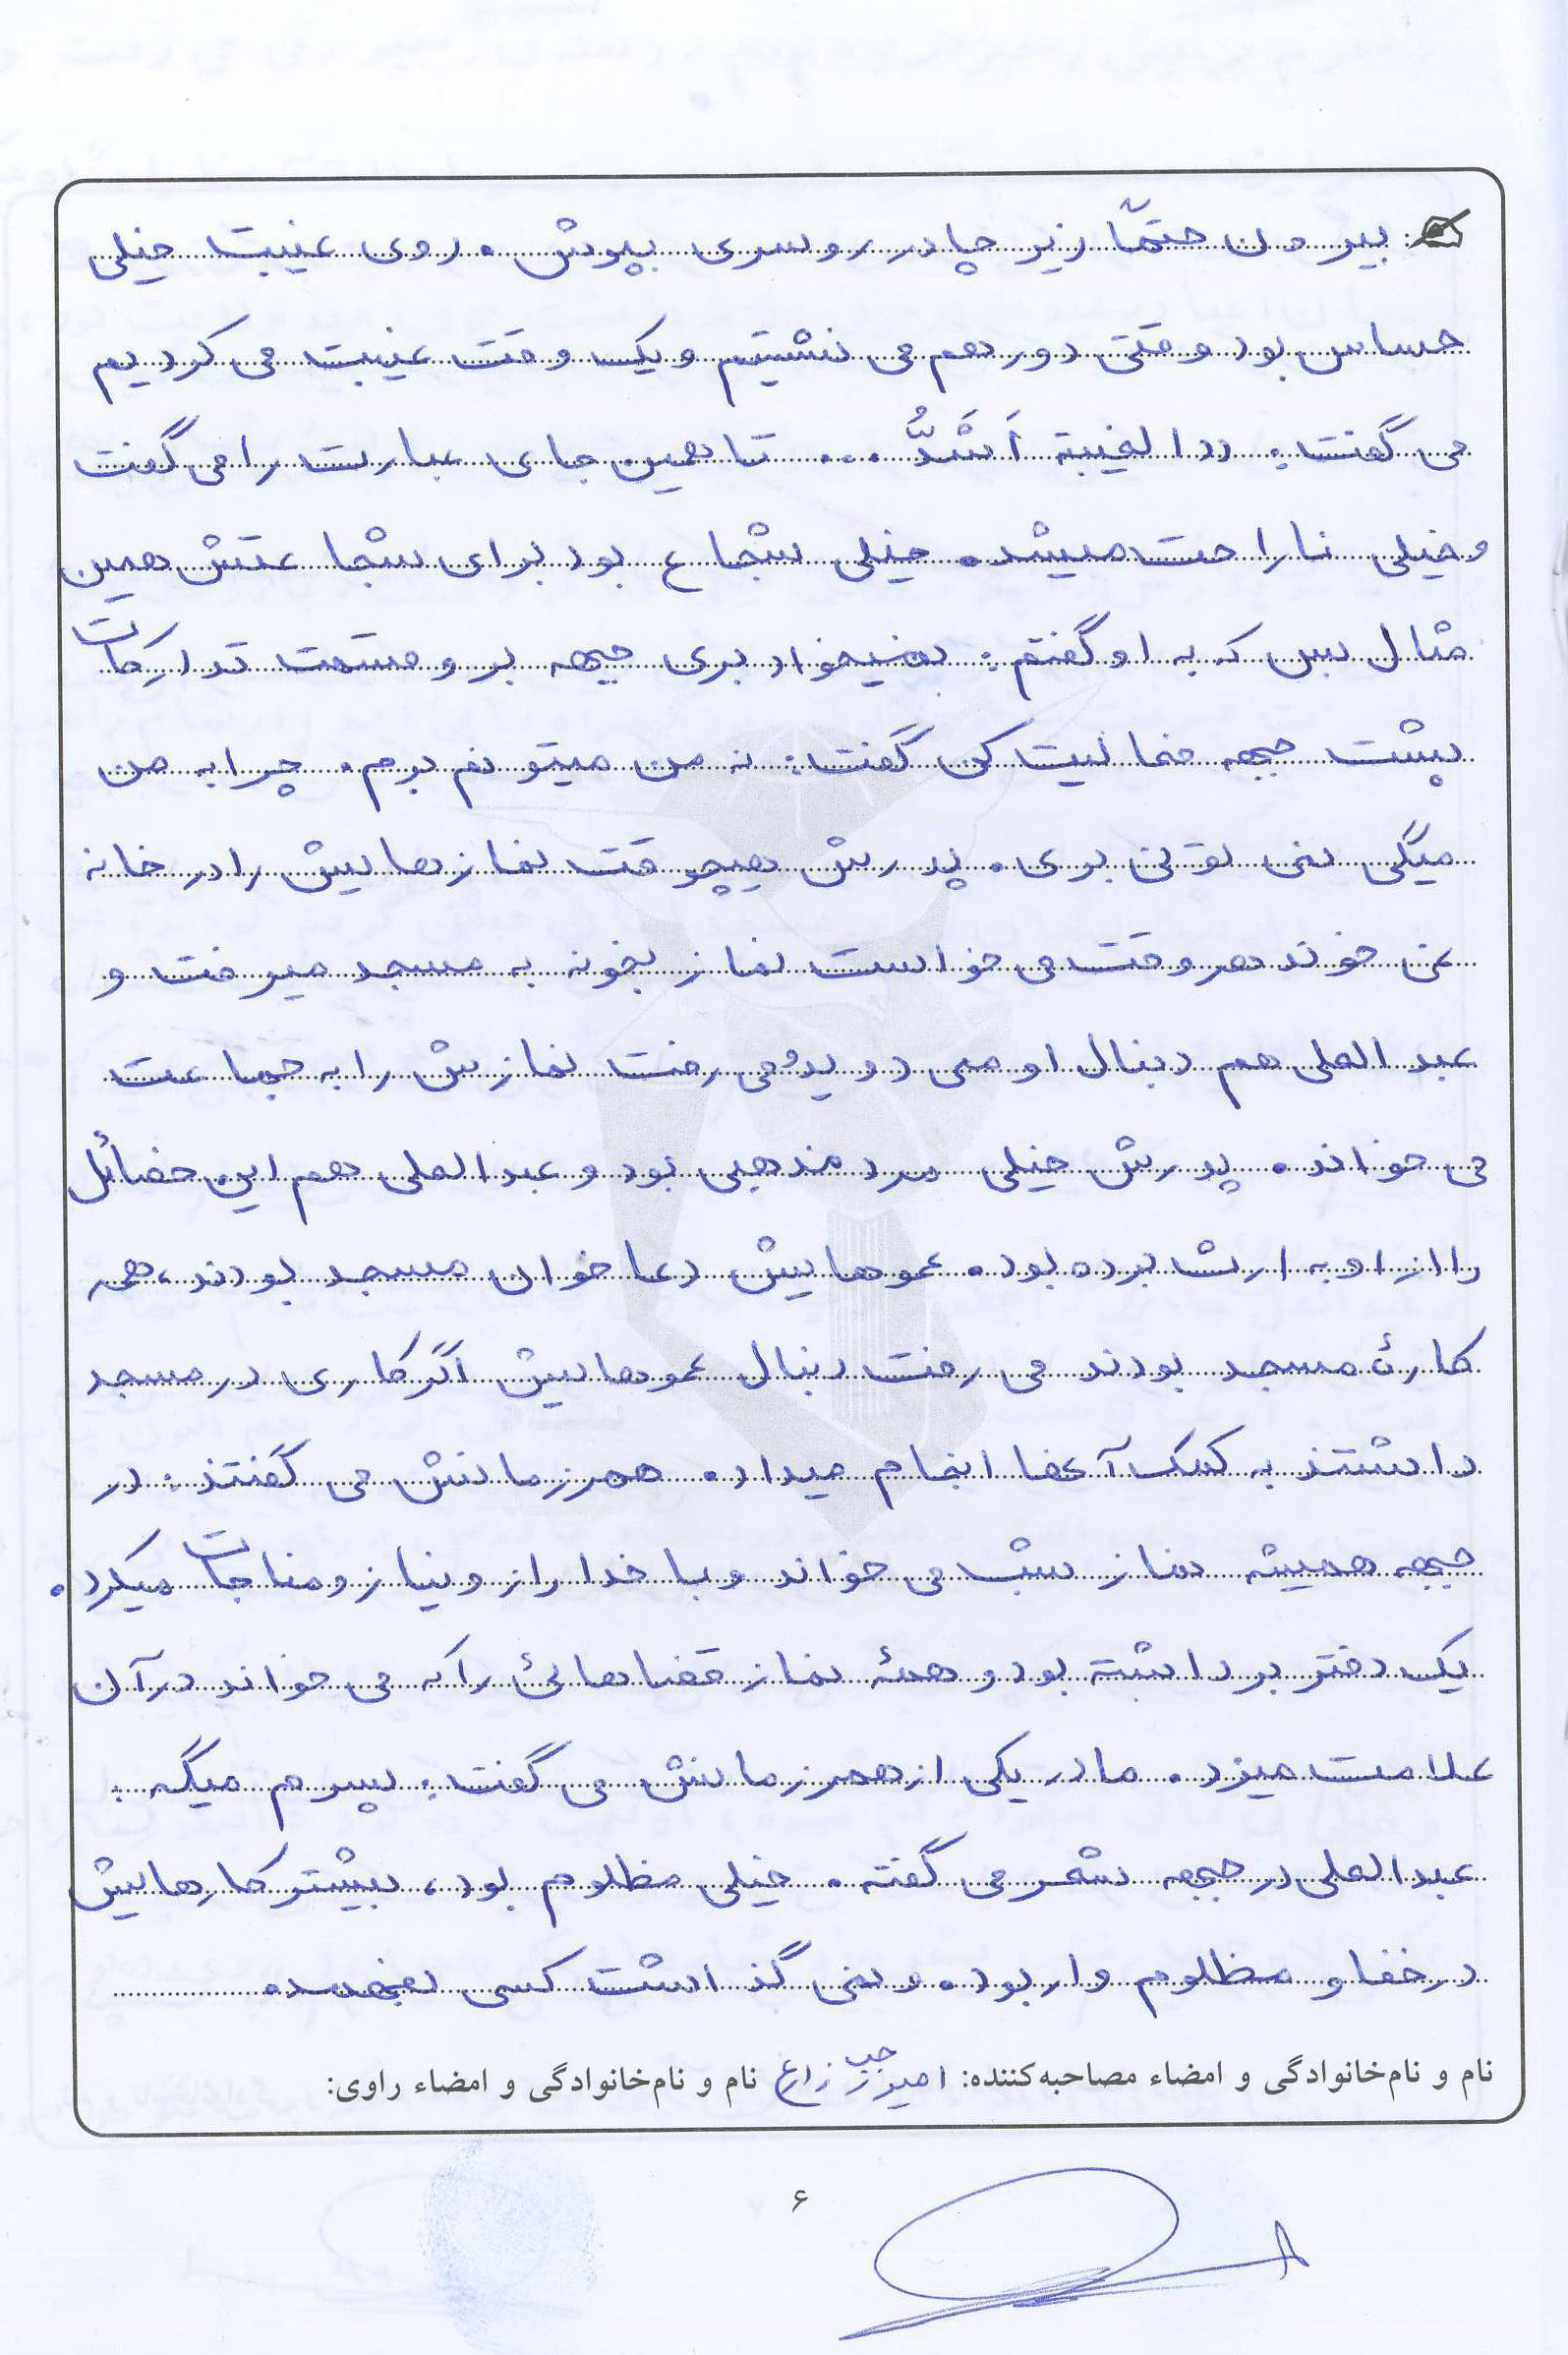 بیرون حتماً زیر چادر روسری بپوش. روی غیبت خیلی
حساس بود وقتی دور هم می نشستیم و یک وقت غیبت می کردیم
می گفت: ((الغیبة اَشَدُّ ... تا همین جای عبارت را می گفت
و خیلی ناراحت میشد. خیلی شجاع بود برای شجاعتش همین
مثال بس که به او گفتم: نمیخواد بری جبهه برو قسمت تدارکات
پشت جبهه فعالیت کن گفت: نه من میتونم برم. چرا به من
میگی نمی تونی بری. پدرش هیچوقت نمازهایش را در خانه
نمی خوند هر وقت می خواست نماز بخونه به مسجد میرفت و
عبدالعلی هم دنبال او می دوید و می رفت نمازش را به جماعت
می خواند. پدرش خیلی مرد مذهبی بود و عبدالعلی هم این خصائل
را از او به ارث برده بود. عموهایش دعا خوان مسجد بودند، همه
کارهٔ مسجد بودند می رفت دنبال عموهایش اگر کاری در مسجد
داشتند به کمک آنها انجام میداد. همرزمانش می گفتند: در
جبهه همیشه نماز شب می خواند و با خدا راز و نیاز و مناجات میکرد.
یک دفتر برداشته بود و همهٔ نماز قضاهائی را که می خواند در آن
علامت میزد. مادر یکی از همرزمانش می گفت: پسرم میگه:
عبدالعلی در جبهه شعر می گفته. خیلی مظلوم بود، بیشتر کارهایش
در خفا و مظلوم وار بود. و نمی گذاشت کسی بفهمد.
نام و نام‌خانوادگی و امضاء مصاحبه‌کننده: زارع نام و نام‌خانوادگی و امضاء راوی:
۶